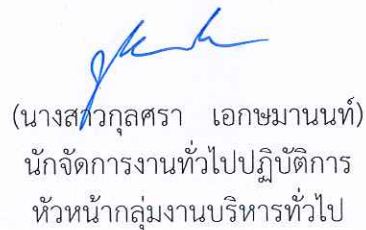 (นางสาวกุลศรา เอกษมานนท์)
นักจัดการงานทั่วไปปฏิบัติการ
หัวหน้ากลุ่มงานบริหารทั่วไป